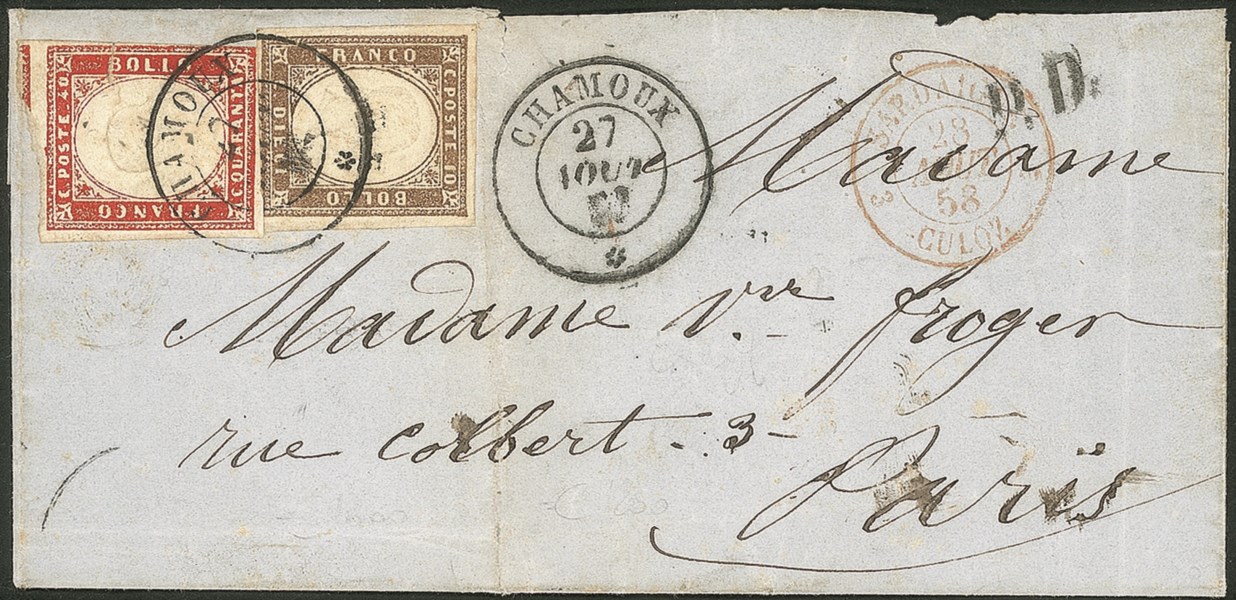 BOLLO
C. POSTE 40
C. QUARANTA
FRANCO
FRANCO
C. POSTE 10
BOLLO
CHAMOUX
CHAMOUX
27
AOUT
SARDAIGNE
28
AOUT
58
CULOZ
P.D.
Madame
Madame Vve froger
rue Colbert - 3 -
Paris